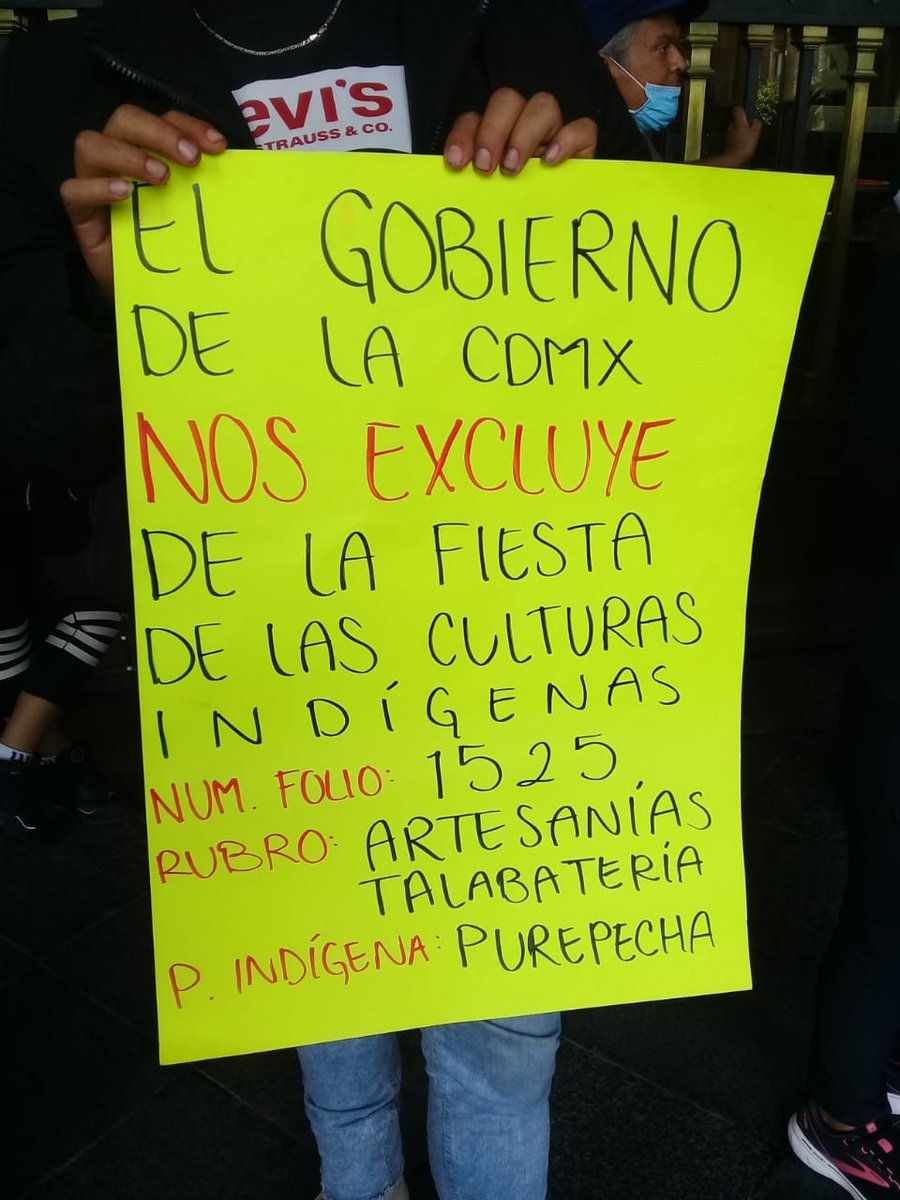 evi's
STRAUSS & CO.
EL GOBIERNO
DE LA CDMX
NOS EXCLUYE
DE LA FIESTA
DE LAS CULTURAS
INDÍGENAS
NUM. FOLIO: 1525
RUBRO: ARTESANÍAS
TALABATERÍA
P. INDÍGENA: PUREPECHA